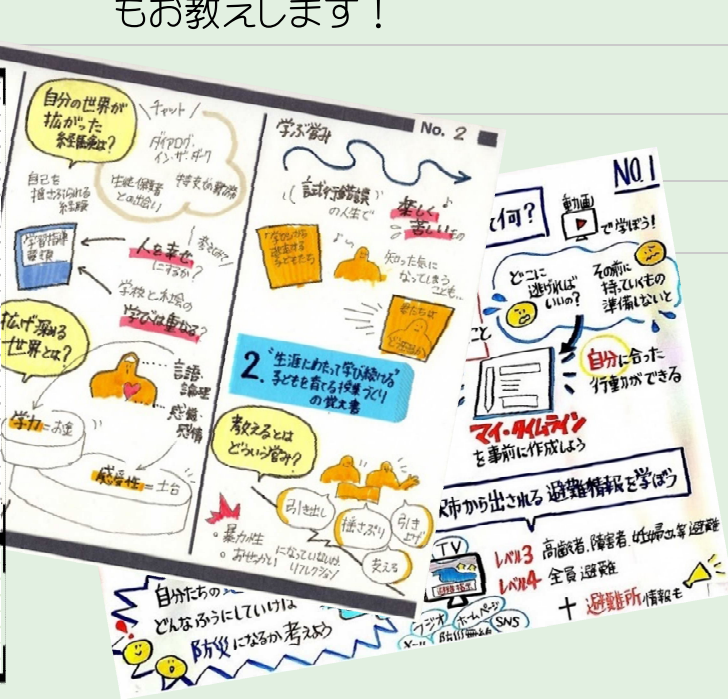 もお教えします！
No. 2
自分の世界が
拡がった
経験は？
チャット
ダイアログ・
イン・ザ・ダーク
生徒・保護者
との出会い
自己を
揺さぶられる
経験
学習指導
要領
人を幸せ
にするか？
学校と社会の
学びは重なる？
拡げ深める
世界とは？
言語・
論理
感識・
感情
学力＝お金
感受性＝土台
学ぶ営み
試行錯誤
の人生で
楽しく
苦しいもの
知った気に
なってしまう
こども…
2.
"生涯にわたって学び続ける"
子どもを育てる授業づくり
の覚え書
教えるとは
どういう営み？
引き出し
揺さぶり
引き
上げ
支える
暴力が生
おせっかい
になっていないか、
リフレクション
NO.1
何？
動画
で学ぼう！
どこに
逃げれば
いいの？
その前に
持っていくもの
準備しないと
こと
自分に合った
行動ができる
マイ・タイムライン
を事前に作成しよう
市から出される避難情報を学ぼう
TV
レベル3 高齢者、障害者、妊婦さん等避難
レベル4 全員避難
＋ 避難所情報も
ラジオ
ホームページ
SNS
メール
防災無線
自分たちの
どんなふうにしていけば
防災になるか考えよう